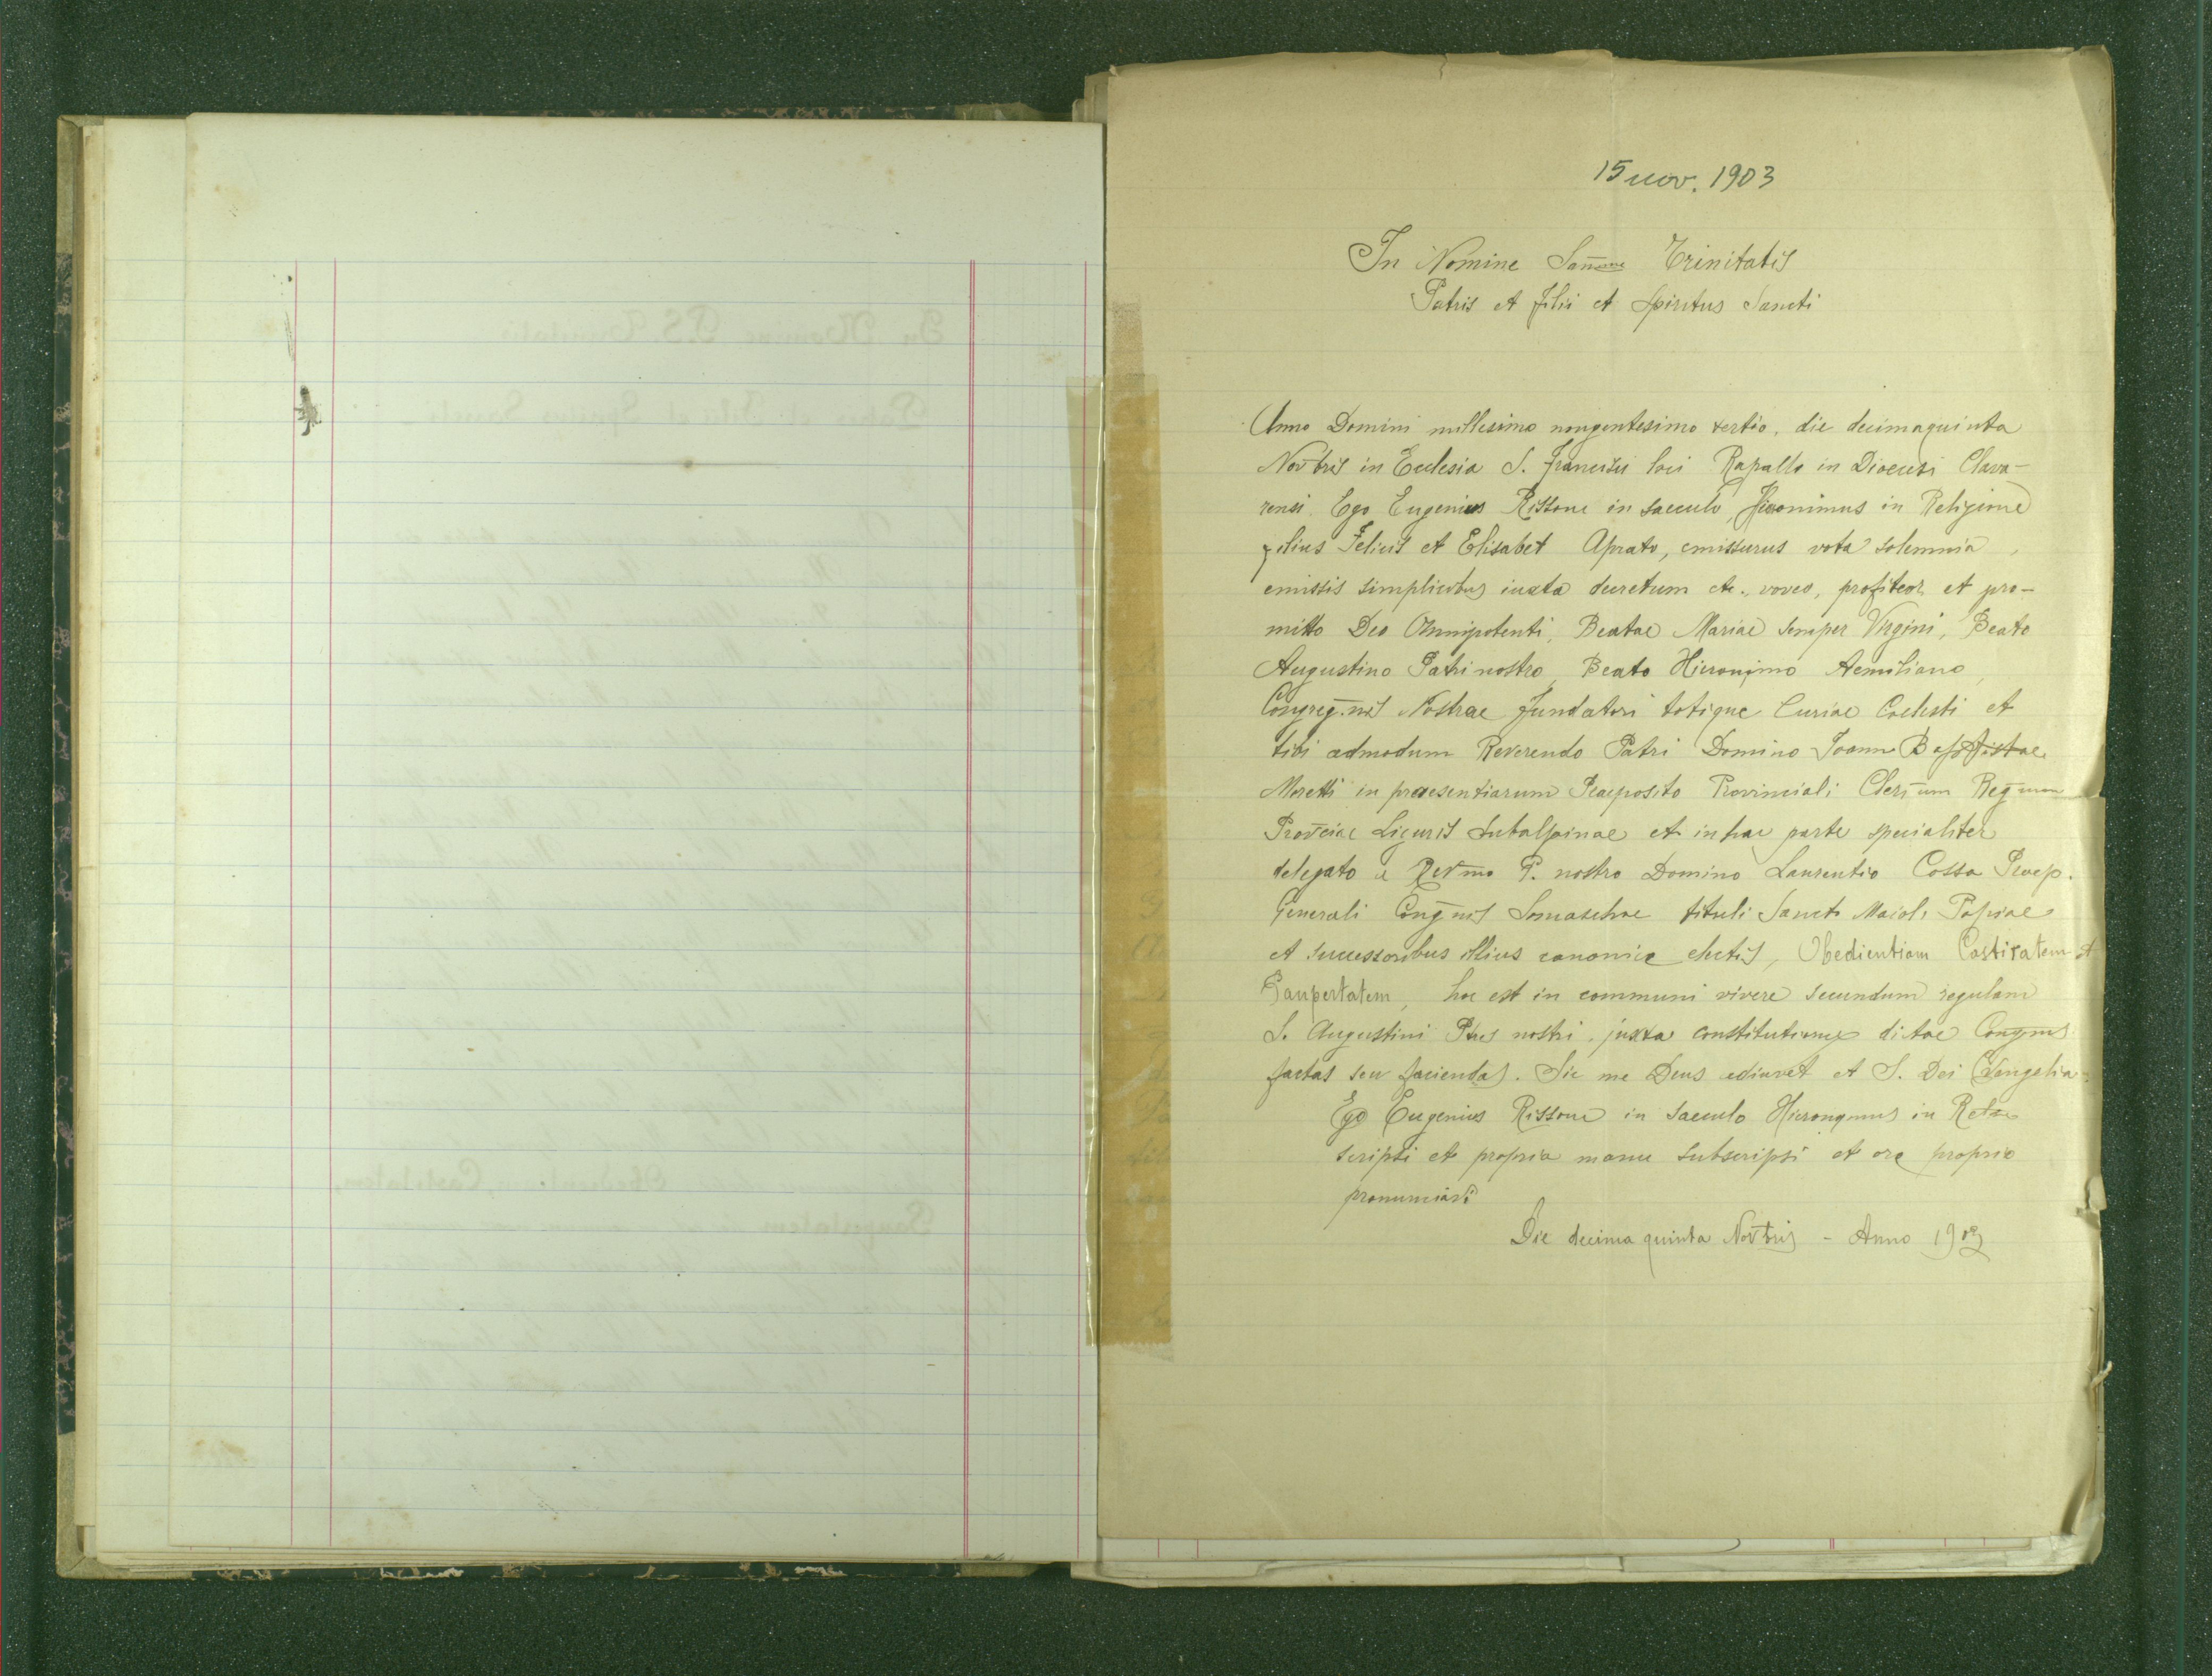 15 nov. 1903
In Nomine San̅mae Trinitatis
Patris et Filii et Spiritus Sancti
Anno Domini millesimo nongentesimo tertio, die decimaquinta
Nov̅bris in Ecclesia S. Francisci loci Rapallo in Diocesi Clava-
rensi Ego Eugenius Rissone in saeculo, Hieronimus in Religione
filius Felicis et Elisabet Aprato, emissurus vota solemnia,
emissis simplicibus iuxta decretum etc., voveo, profiteor et pro-
mitto Deo Omnipotenti, Beatae Mariae semper Virgini, Beato
Augustino Patri nostro, Beato Hieronymo Aemiliano,
Congreg.nis Nostrae Fundatori totique Curiae Coelesti et
tibi admodum Reverendo Patri Domino Joann Baptistae
Moretti in praesentiarum Praeposito Provinciali Cler̅um Reg̅um
Prov̅ciae Liguris Subalpinae et in hac parte specialiter
delegato a Rev̅mo P. nostro Domino Laurentio Cossa Praep.
Generali Cong̅nis Somaschae tituli Sancti Maioli Papiae
et successoribus illius canonice electis, Obedientiam Castitatem et
Paupertatem, hoc est in communi vivere secundum regulam
S. Augustini Ptris nostri, juxta constitutiones dictae Congnis
factas seu faciendas. Sic me Deus adiuvet et S. Dei Evangelia
Ego Eugenius Rissone in saeculo Hieronymus in Relne
scripsi et propria manu subscripsi et ore proprio
pronunciavi
Die decima quinta Nov̅bris - Anno 1903